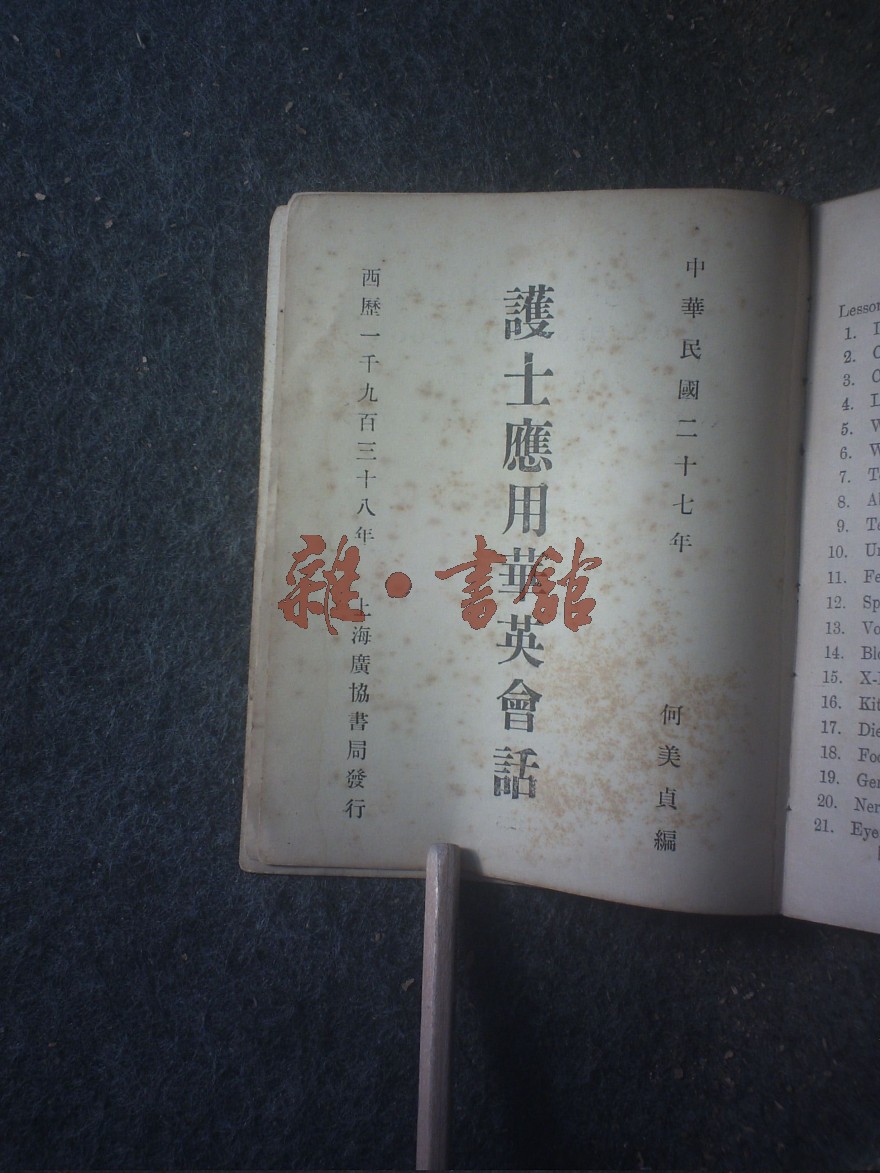 中華民國二十七年
何美貞編
護士應用華英會話
西歷一千九百三十八年 上海廣協書局發行
雜·書館
Lesson
1.
2.
3.
4.
5.
6.
7.
8.
9.
10.
11.
12.
13.
14.
15.
16.
17.
18.
19.
20.
21. Eye